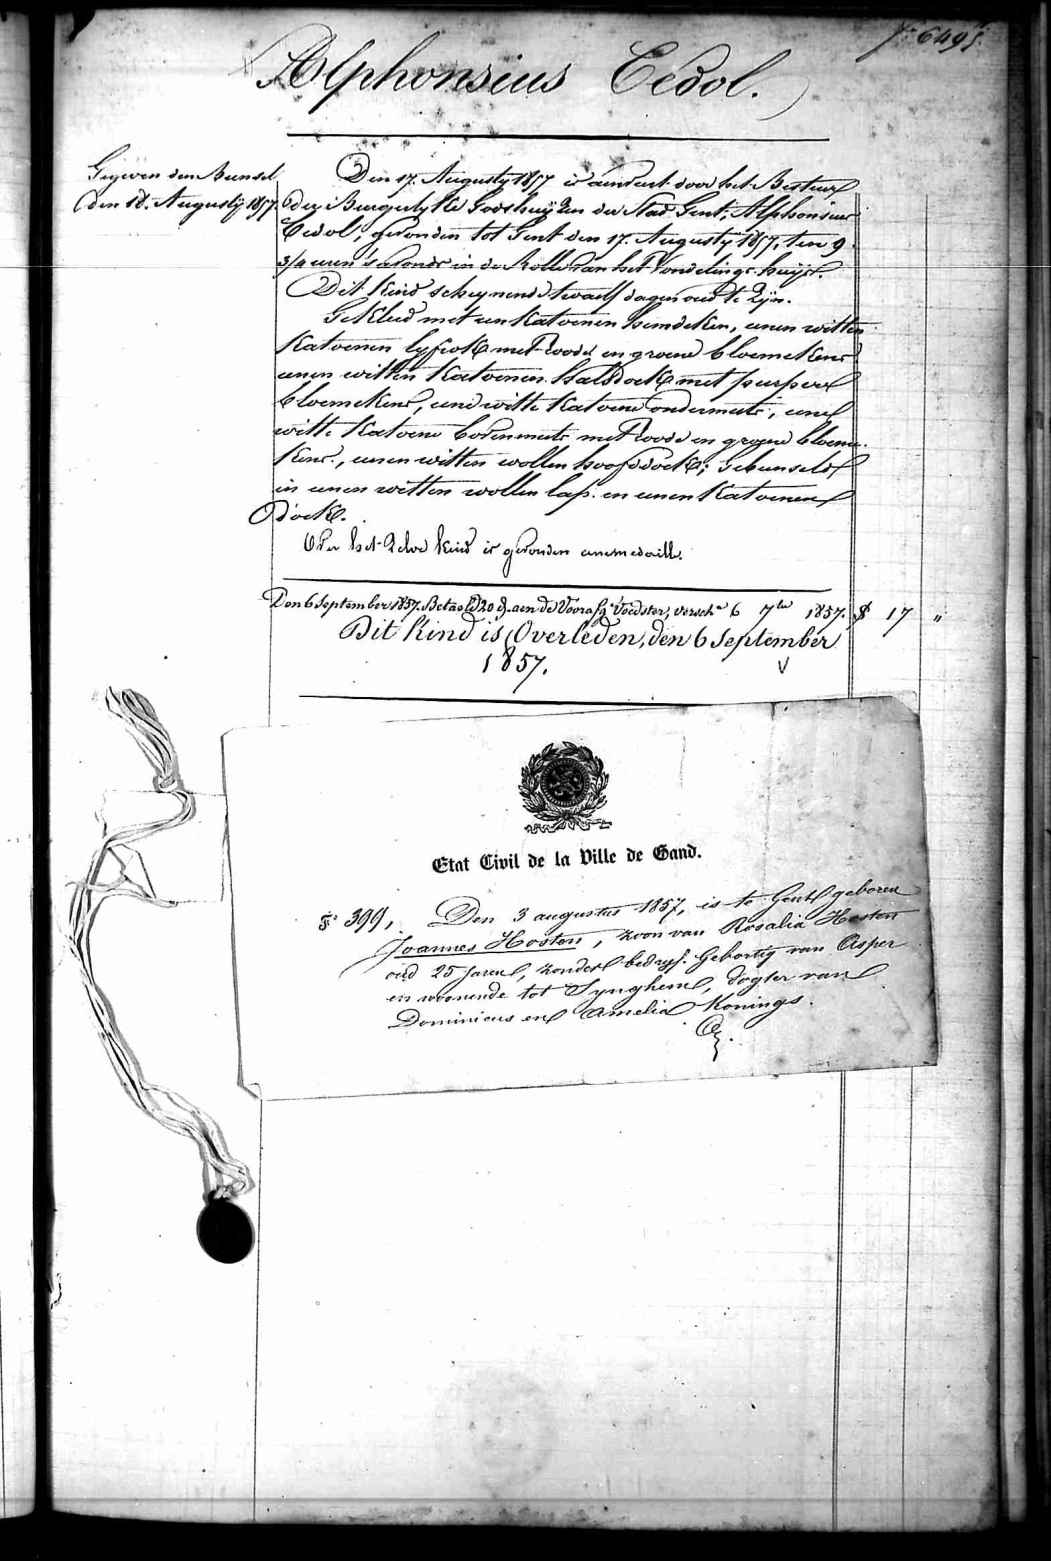 N° 6495.
Alphonsius Eedol.
Gegeven den Bunsel
den 18. Augusty 1857.
Den 17. Augusty 1857 is aenveert door het Bestuur
der Burgerlyke Godshuyzen der Stad Gent, Alphonsius
Eedol, gevonden tot Gent den 17. Augusty 1857, ten 9
3/4 uren s'avonds in de Rolle van het Vondelings-huys.
Dit Kind scheynende twaelf dagen oud te Zyn.
Gekleed met een Katoenen hemdeken, eenen witten
Katoenen lyfrok met roode en groene bloemekens
eenen witten Katoenen halsdoek met purpere
bloemekens, eene witte Katoene ondermuts, eene
witte Katoene bovenmuts met roode en groene bloeme-
kens, eenen witten wollen hoofddoek; gebunseld
in eenen witten wollen lap en eenen Katoenen
doek.
Op het Zelve Kind is gevonden eene medaille.
Den 6 September 1857. Betaeld 20 d. aen de Voorafg. Voedster, versch. 6 7ber 1857. 17 "
Dit Kind is Overleden, den 6 September
1857.
Etat Civil de la Ville de Gand.
399, Den 3 augustus 1857, is te Gent geboren
Joannes Hosten, zoon van Rosalia Hosten
oud 25 jaren, zonder bedryf. Gebortig van Asper
en woonende tot Synghem, dogter van
Dominicus en Amelia Konings.